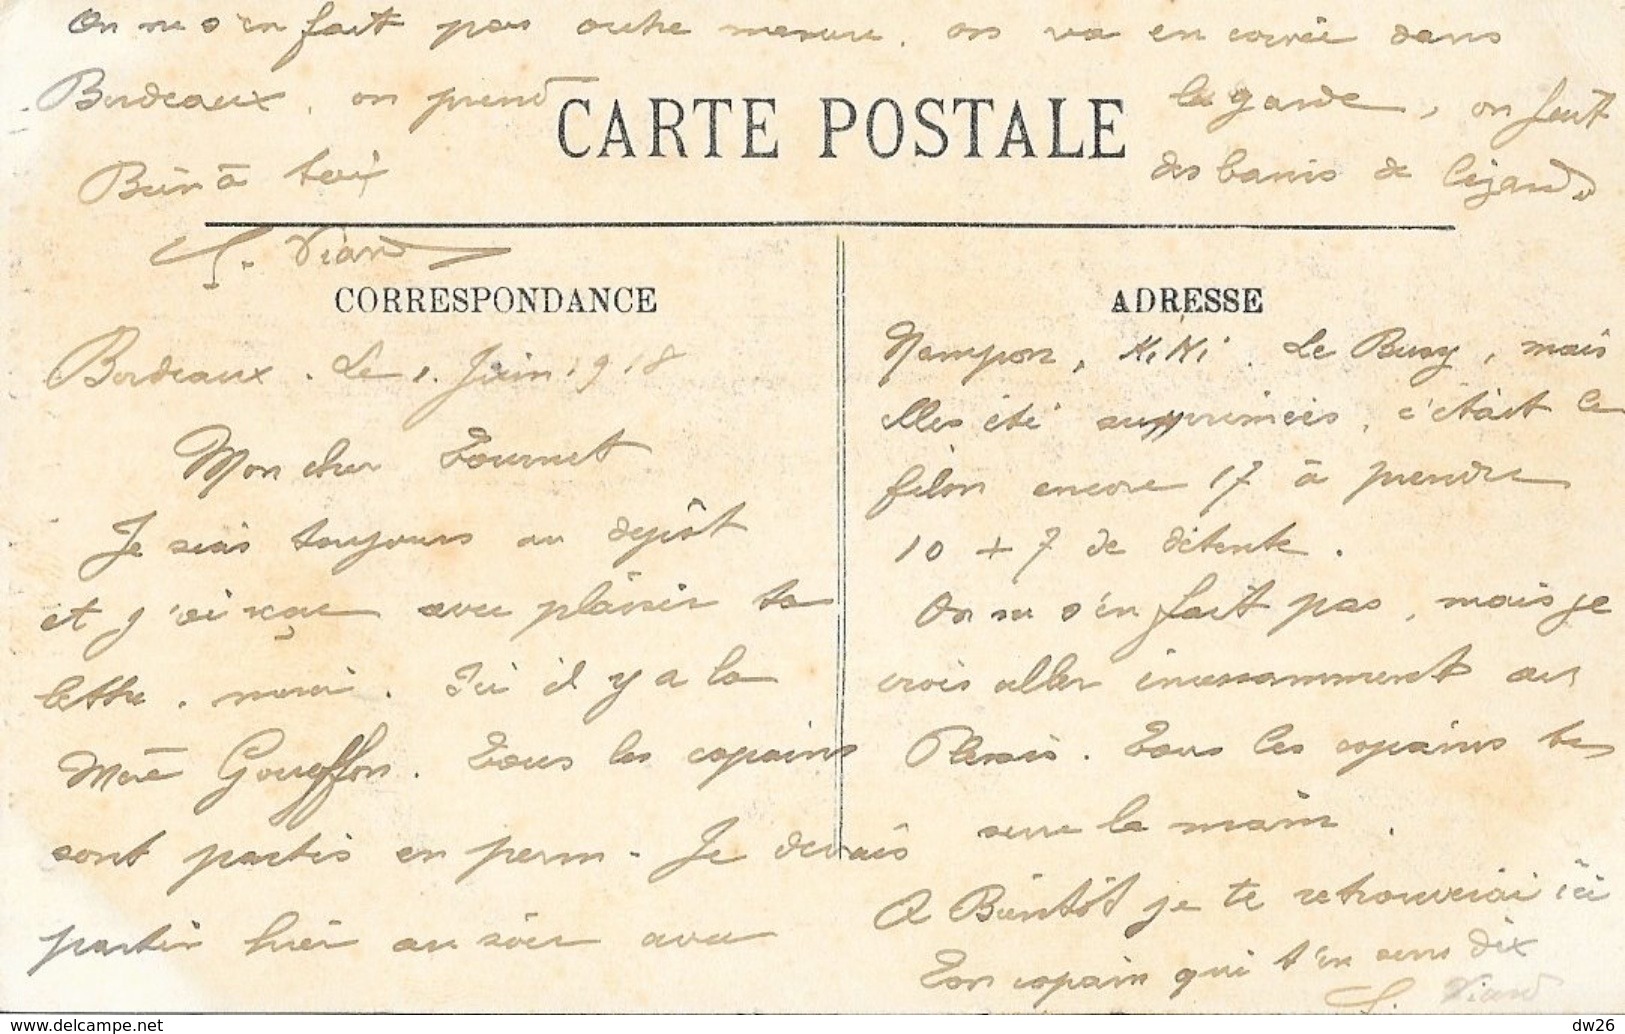 On ne s'en fait pas outre mesure. on va en corvée dans
Bordeaux, on prend la garde, on fait
Bien à toi des bains de lézard.
Viard
CARTE POSTALE
CORRESPONDANCE
Bordeaux. Le 1. Juin 1918
Mon cher Tournet
Je suis toujours au dépôt
et j'ai reçue avec plaisir ta
lettre. merci. Ici il y a la
Mère Goueffon. Tous les copains
sont partis en perm. Je devais
partir hier au soir avec
ADRESSE
Nampon, KiKi. Le Buzy, mais
elles été supprimées, c'était le
filon encore 17 à prendre
10 + 7 de détente.
On ne s'en fait pas, mais je
crois aller incessamment au
Plessis. Tous les copains te
serre la main.
A Bientôt je te retrouverai ici
Ton copain qui t'en serre dix
Viard
dw26